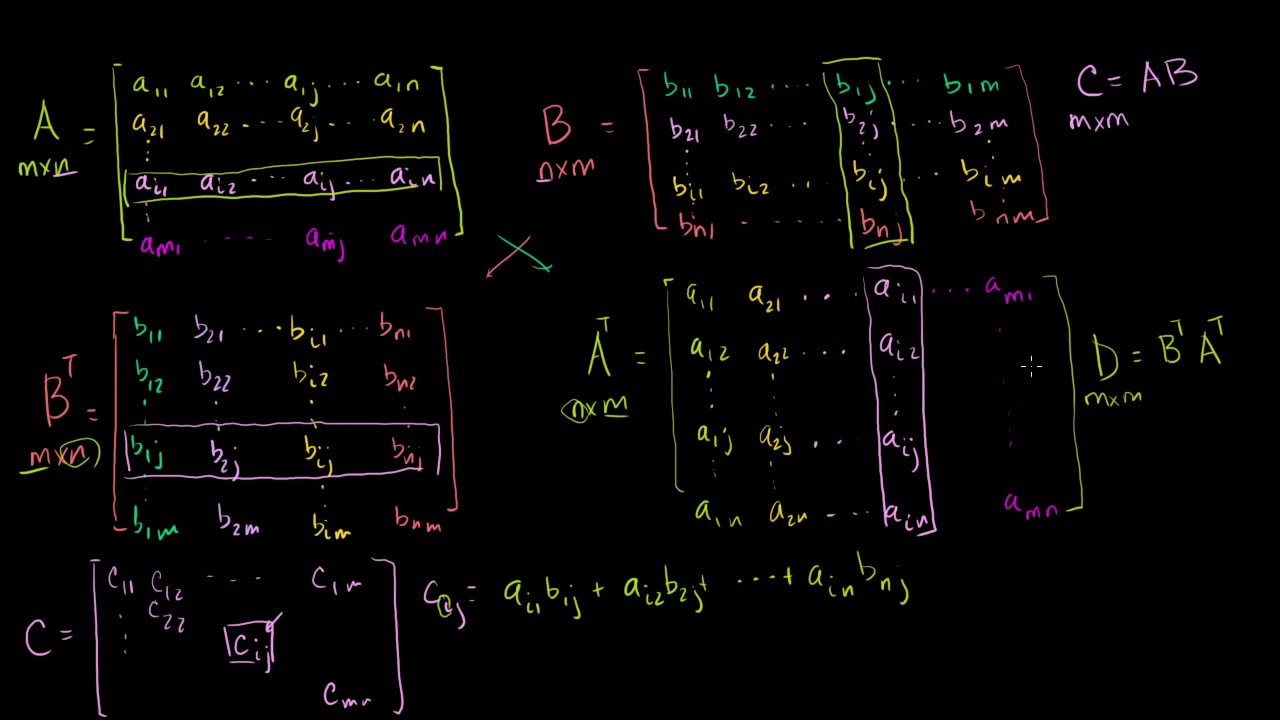 A m×n = [ a₁₁ a₁₂ ··· a₁ⱼ ··· a₁ₙ
a₂₁ a₂₂ ··· a₂ⱼ ··· a₂ₙ
⋮
aᵢ₁ aᵢ₂ ··· aᵢⱼ ··· aᵢₙ
⋮
aₘ₁ ···· aₘⱼ aₘₙ ]
B n×m = [ b₁₁ b₁₂ ··· b₁ⱼ ··· b₁ₘ
b₂₁ b₂₂ ··· b₂ⱼ ··· b₂ₘ
⋮ ⋮ ⋮
bᵢ₁ bᵢ₂ ·· bᵢⱼ ··· bᵢₘ
bₙ₁ ····· bₙⱼ bₙₘ ]
C = AB
m×m
Bᵀ m×n = [ b₁₁ b₂₁ ··· bᵢ₁ ··· bₙ₁
b₁₂ b₂₂ bᵢ₂ bₙ₂
⋮ ⋮ ⋮ ⋮
b₁ⱼ b₂ⱼ bᵢⱼ bₙⱼ
⋮ ⋮
b₁ₘ b₂ₘ bᵢₘ bₙₘ ]
Aᵀ n×m = [ a₁₁ a₂₁ ··· aᵢ₁ ··· aₘ₁
a₁₂ a₂₂ ··· aᵢ₂
⋮ ⋮ ⋮
a₁ⱼ a₂ⱼ ··· aᵢⱼ
⋮ ⋮
a₁ₙ a₂ₙ ··· aᵢₙ aₘₙ ]
D = Bᵀ Aᵀ
m×m
C = [ c₁₁ c₁₂ ···· c₁ₘ
⋮ c₂₂
⋮ cᵢⱼ
cₘₙ ]
cᵢⱼ = aᵢ₁b₁ⱼ + aᵢ₂b₂ⱼ + ··· + aᵢₙbₙⱼ